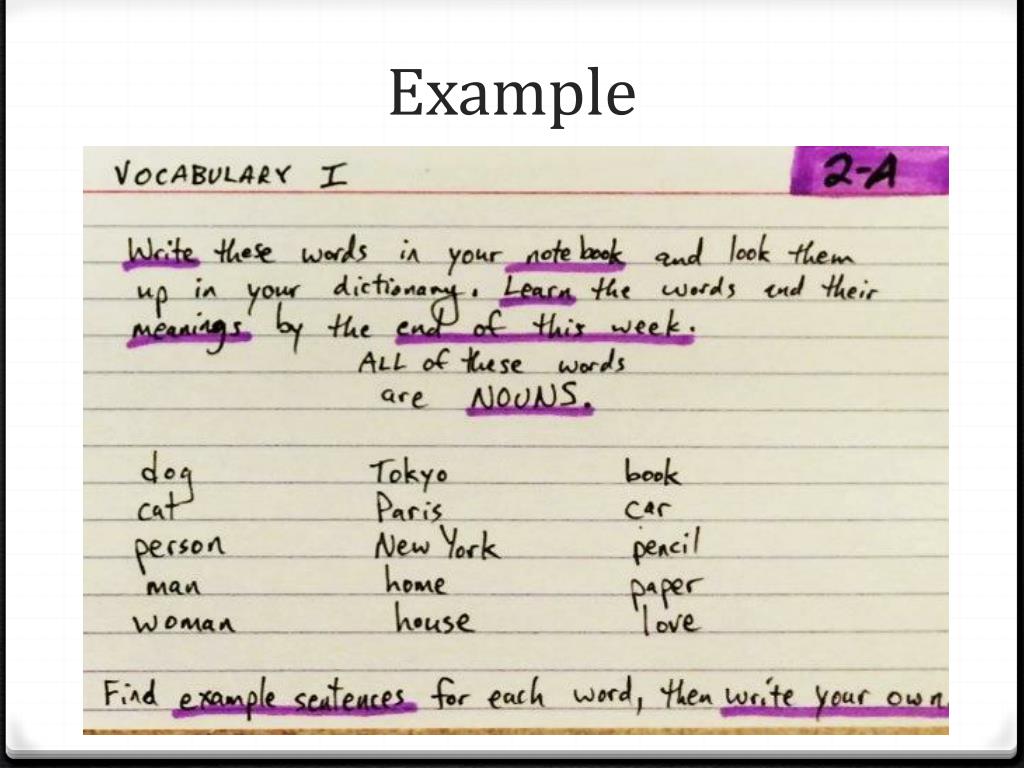 Example
VOCABULARY I 2-A
Write these words in your notebook and look them
up in your dictionary. Learn the words and their
meanings by the end of this week.
ALL of these words
are NOUNS.
dog Tokyo book
cat Paris car
person New York pencil
man home paper
woman house love
Find example sentences for each word, then write your own